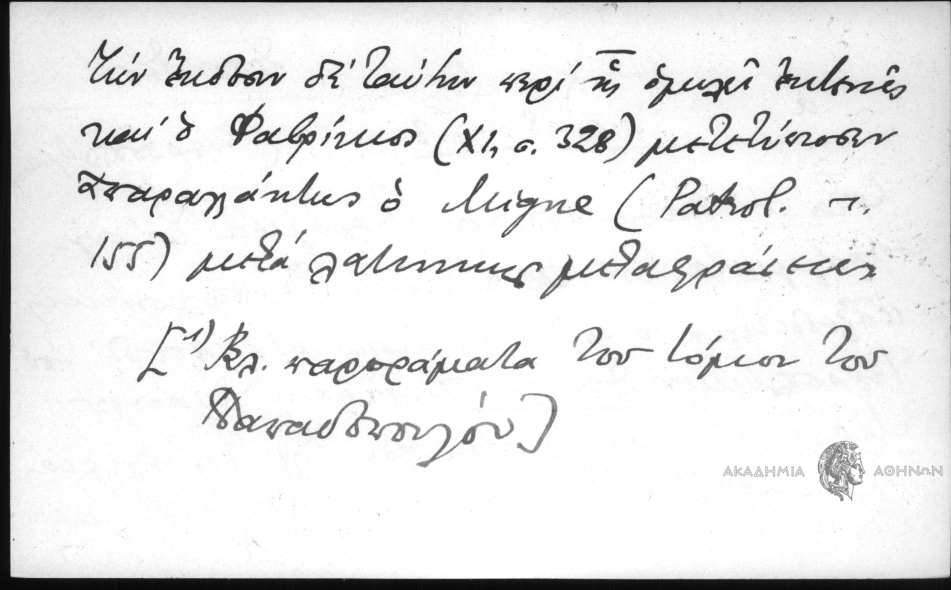 τὴν ἔκδοσιν δὲ ταύτην περὶ ἧς ὁμιλεῖ ἐκτενῶς
καὶ ὁ Φαβρίκιος (XI, σ. 328) μετετύπωσεν
ἀπαραλλάκτως ὁ Migne (Patrol. τ.
155) μετὰ λατινικῆς μεταφράσεως
[¹) Βλ. παροράματα τοῦ τόμου τοῦ
Παπαδοπούλου]
ΑΚΑΔΗΜΙΑ ΑΘΗΝΩΝ